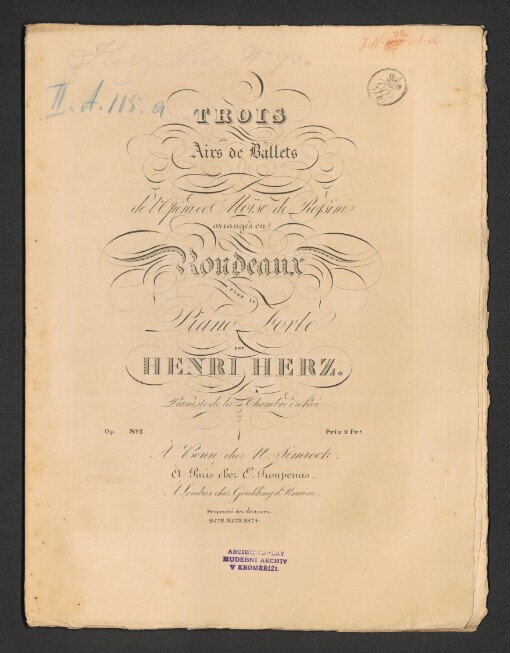 II. A. 115. a
TROIS
Airs de Ballets
de l'Opéra de Moïse de Rossini
arrangés en
Rondeaux
pour le
Piano Forte
par
HENRI HERZ.
Pianiste de la Chambre du Roi
Op. No 1 Prix 2 Frs
À Bonn chez N. Simrock.
À Paris chez E. Troupenas.
À Londres chez Goulding d'Almaine.
Propriété des éditeurs.
2572. 2573. 2574.
ARCHIBISKUPSKÝ
HUDEBNÍ ARCHIV
V KROMĚŘÍŽI.